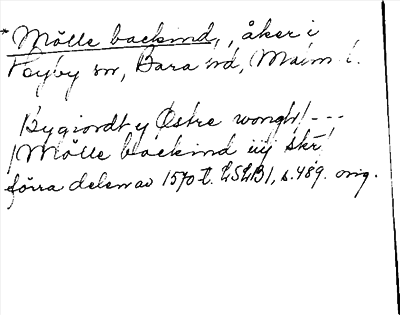 * Mölle backind, åker i
Törby sn, Bara hd, Malm. l.
Bygiordt y Östre wongh! ---
Mölle backind iiij skr!
förra delen av 1570 t. LSLB I, s. 489. orig.